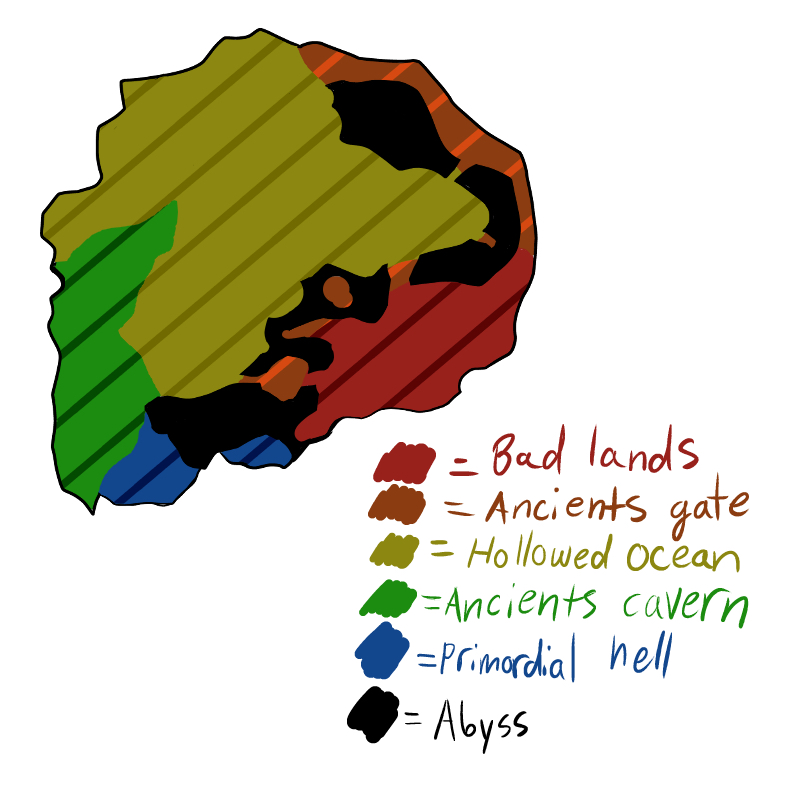 = Bad lands
= Ancients gate
= Hollowed ocean
= Ancients cavern
= Primordial hell
= Abyss